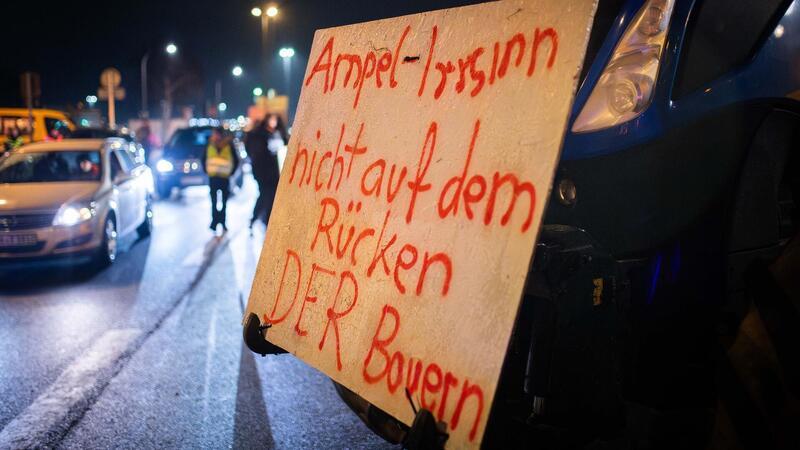 Ampel-Irrsinn
nicht auf dem
Rücken
DER Bauern